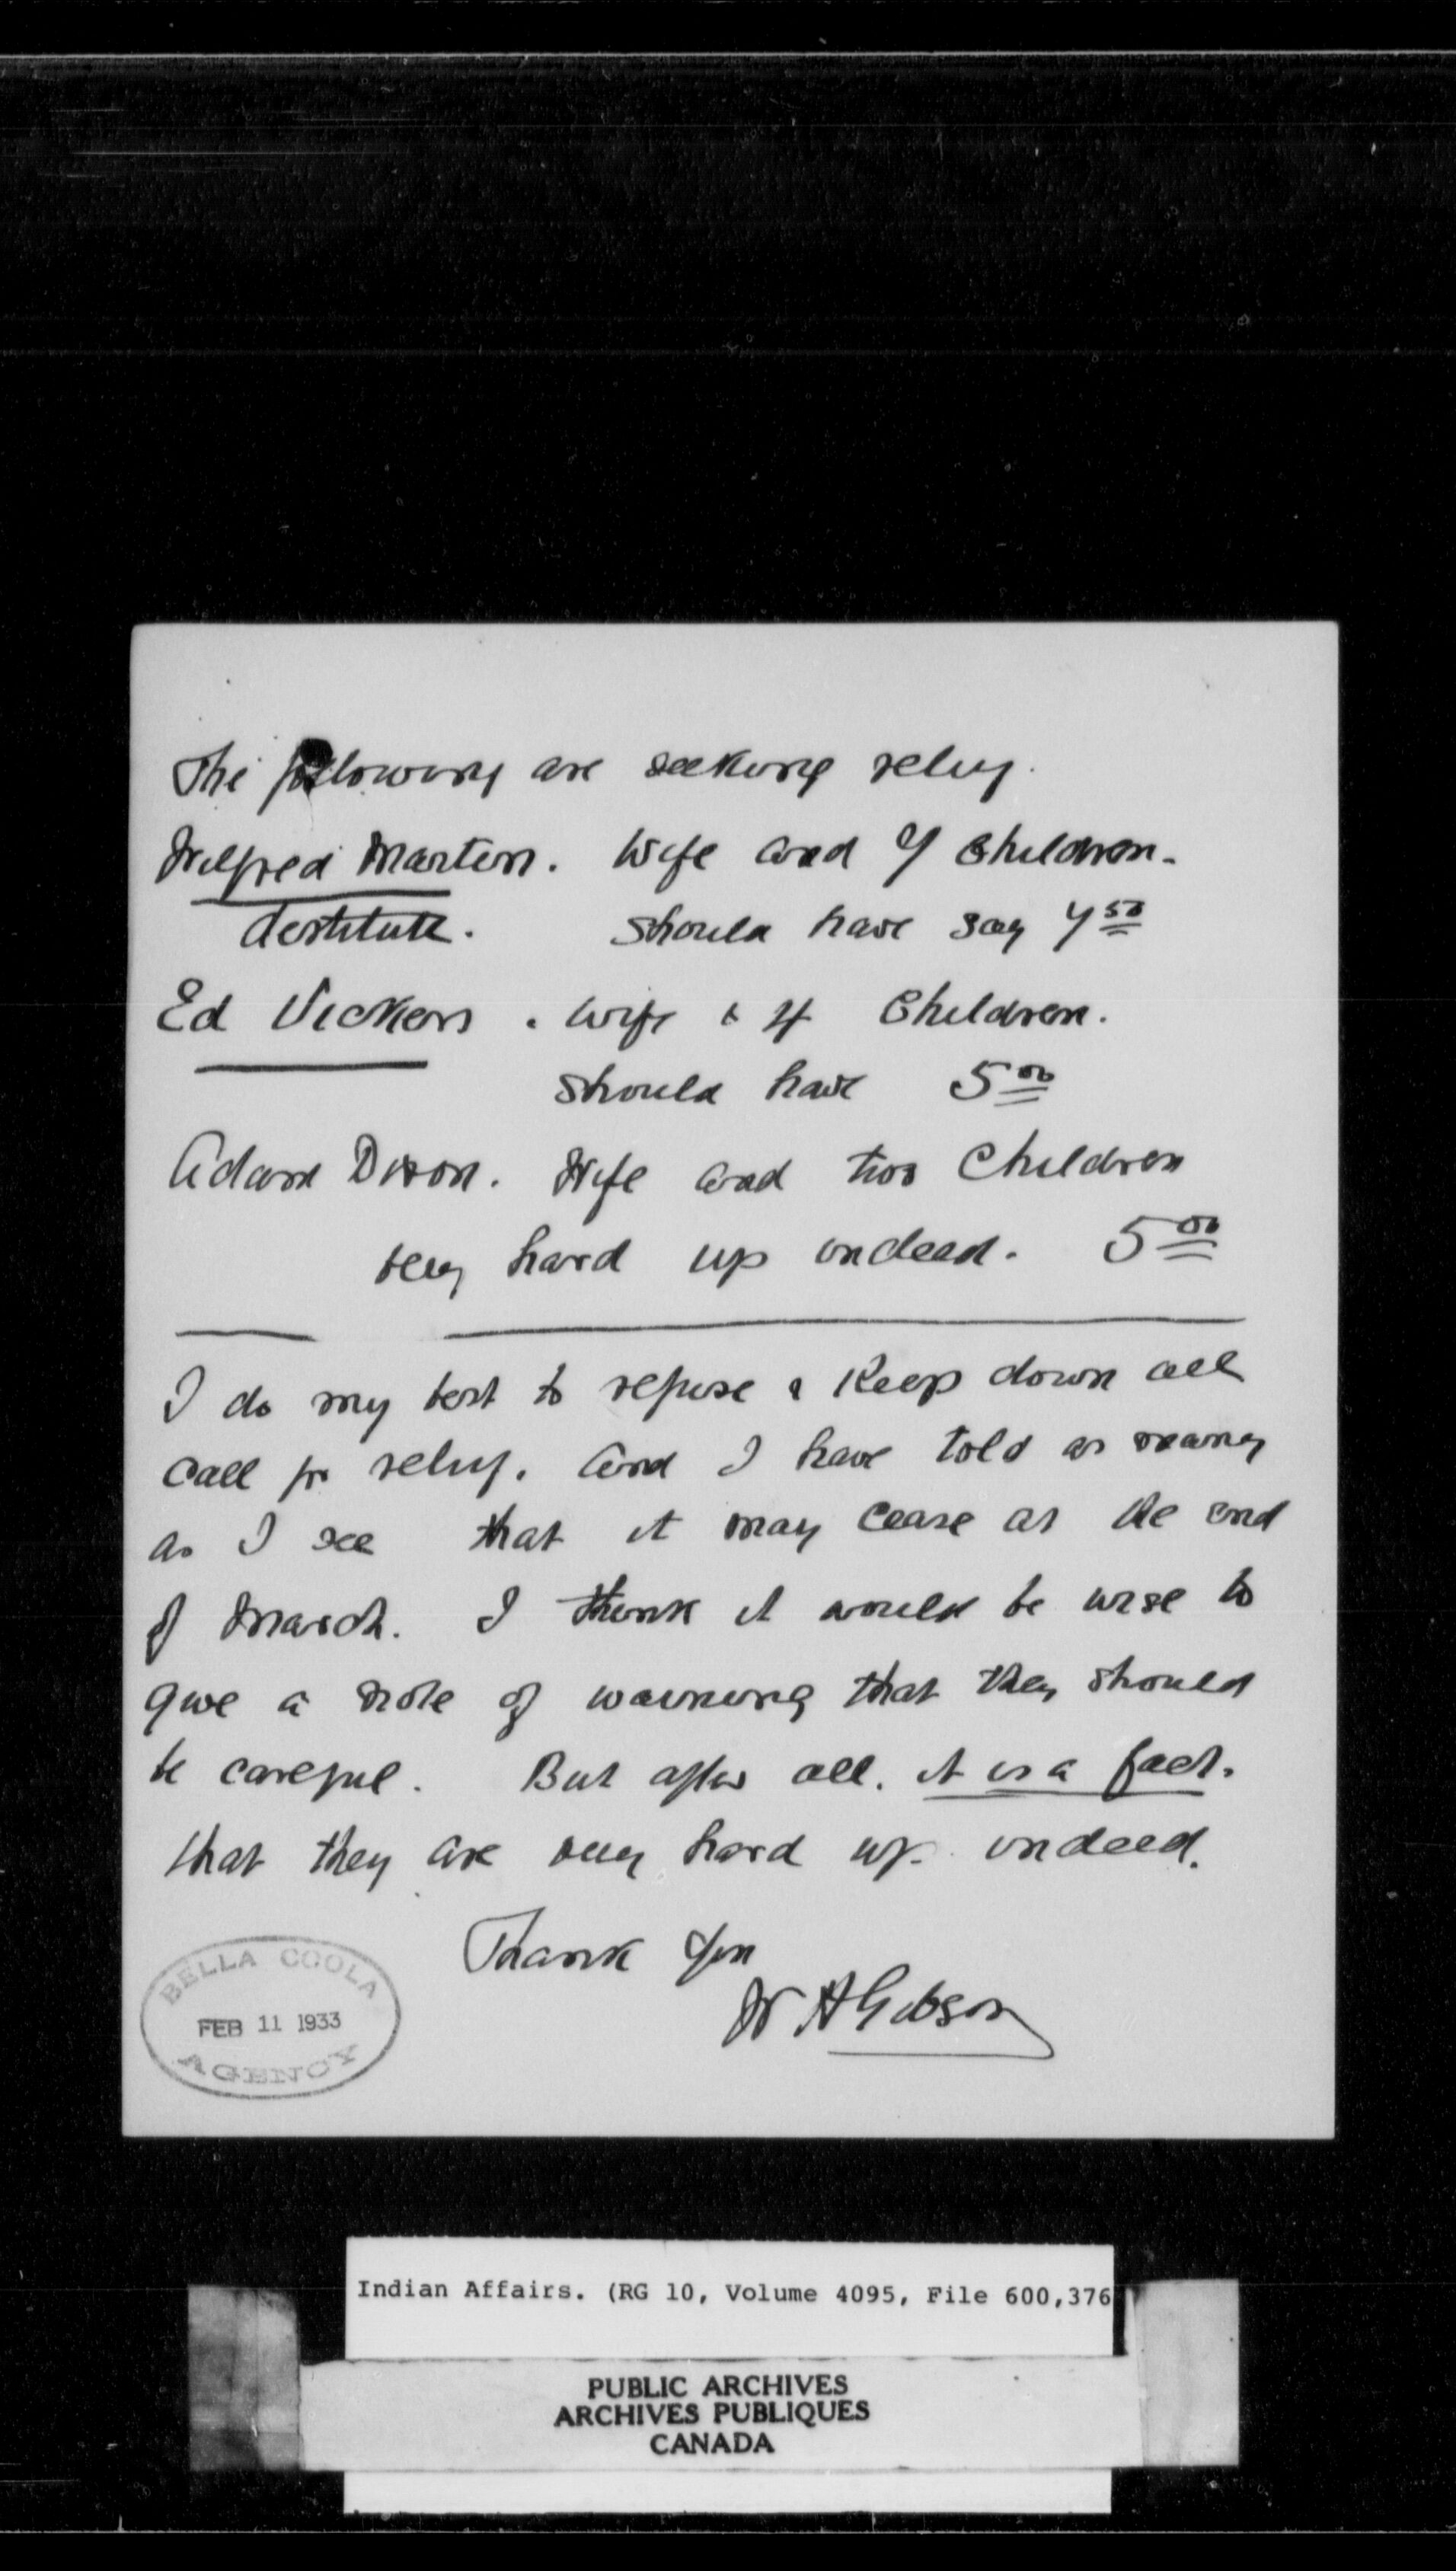 The following are seeking relief.
Wilfred Martin. Wife and 7 Children.
destitute. should have say 7 50
Ed Vickers. Wife & 4 Children.
should have 5 00
Adam Dixon. Wife and two Children
very hard up indeed. 5 00
I do my best to refuse & Keep down all
call for relief. And I have told as many
as I see that it may cease as the end
of March. I think it would be wise to
give a note of warning that they should
be careful. But after all. it is a fact.
that they are very hard up. indeed.
Thank you
W H Gibson
BELLA COOLA
FEB 11 1933
AGENCY
Indian Affairs. (RG 10, Volume 4095, File 600,376
PUBLIC ARCHIVES
ARCHIVES PUBLIQUES
CANADA